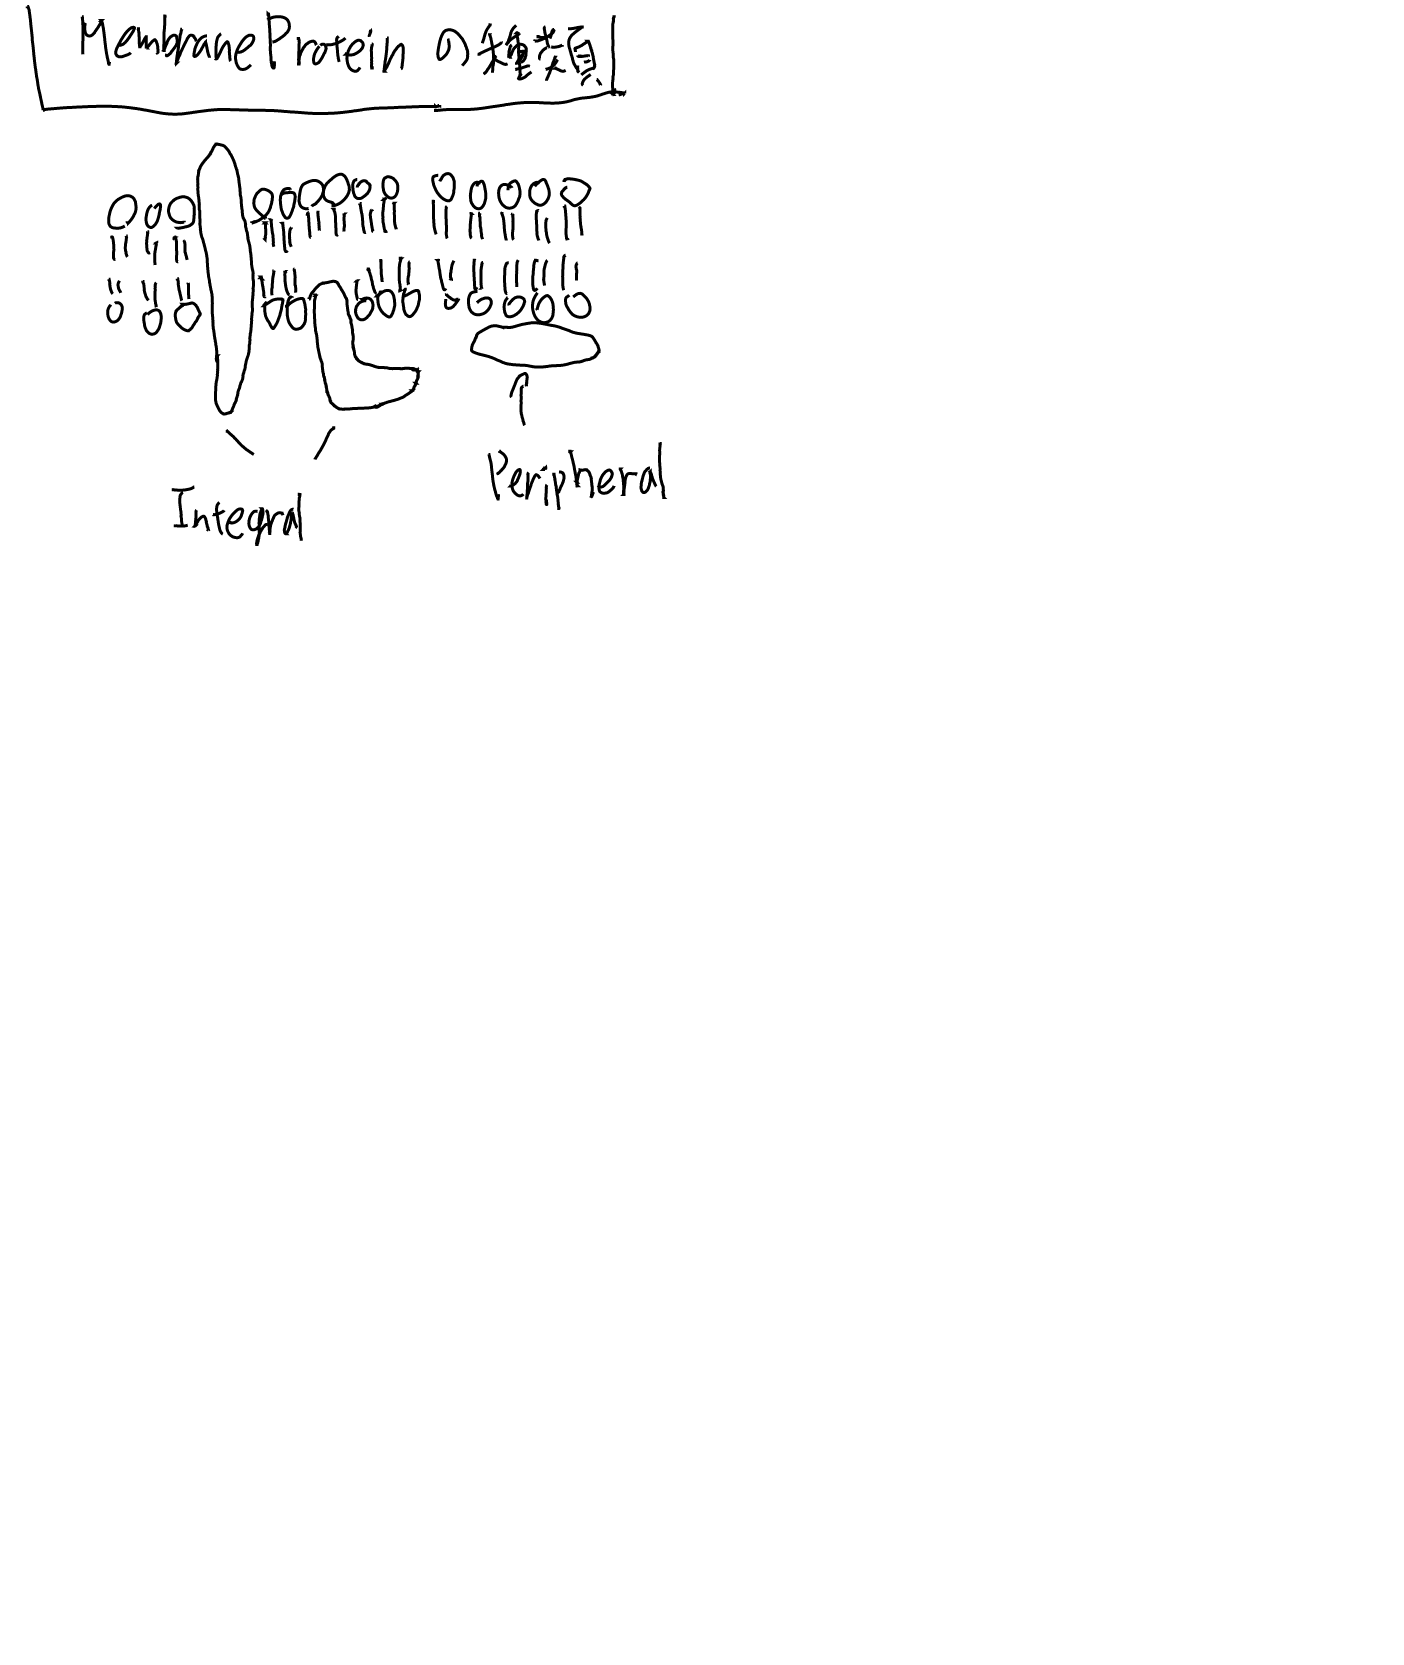 Membrane Protein の種類
Integral
Peripheral